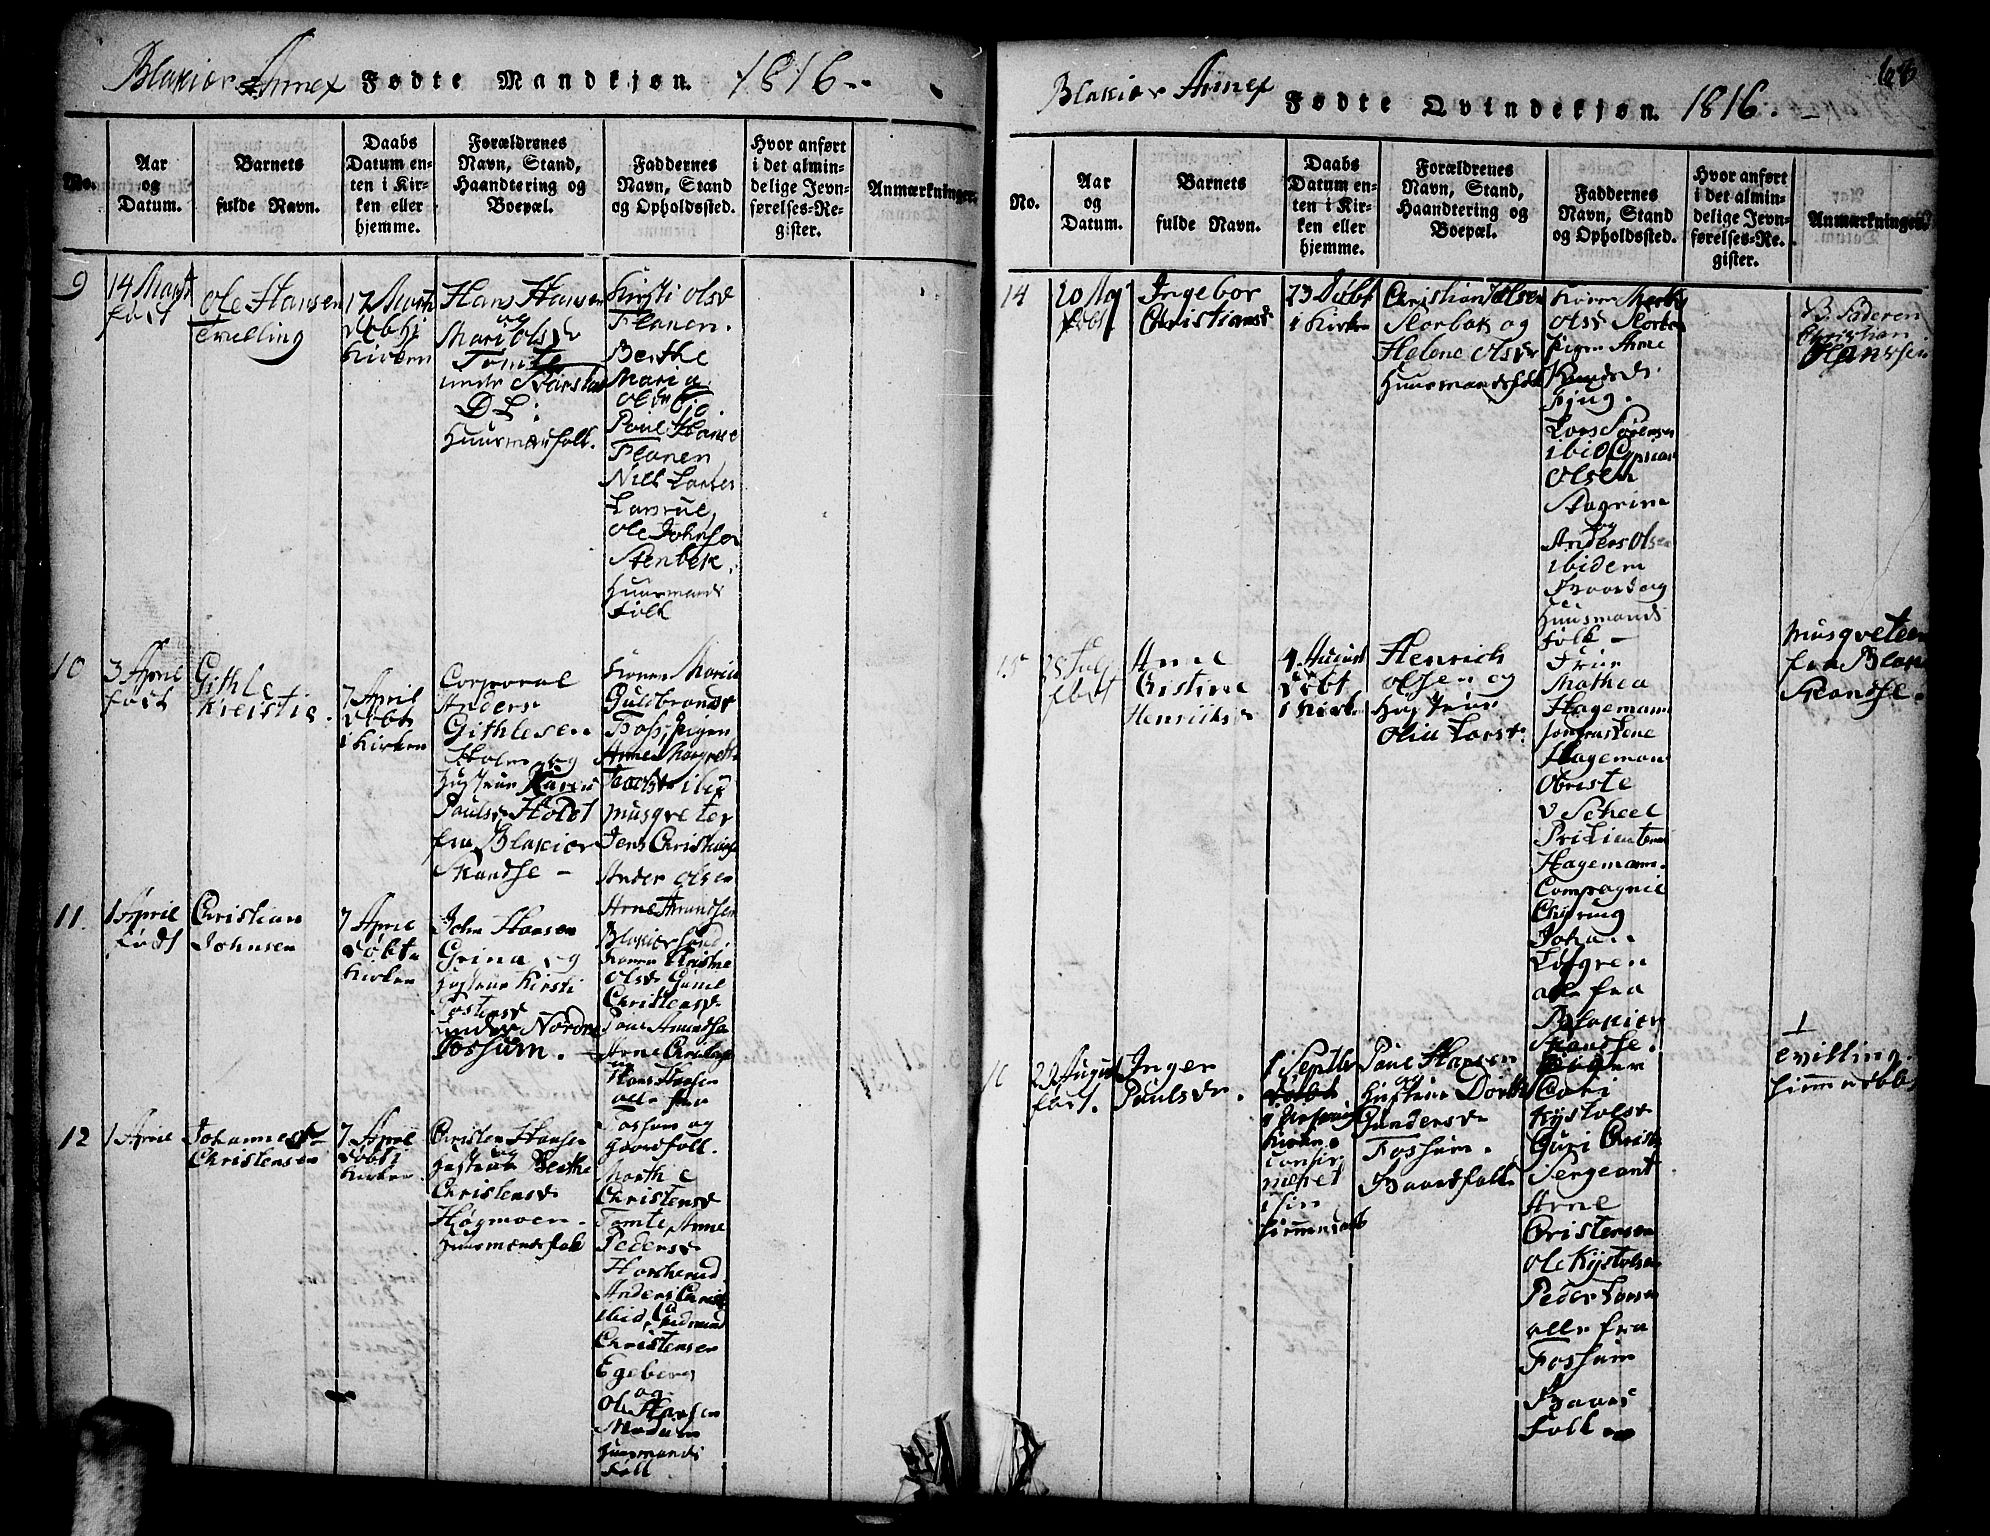 Blakier Annex Fødte Mandkjøn. 1816
No.
Aar
og
Datum.
Barnets
fulde Navn.
Daabs
Datum en-
ten i Kir-
ken eller
hjemme.
Forældrenes
Navn, Stand,
Haandtering og
Boepæl.
Faddernes
Navn, Stand
og Opholdssted.
Hvor anført
i det almin-
delige Jevn-
førelses-Re-
gister.
Anmærkninger.
9
14 Marst
født
Ole Hansen
Tvilling
17 Marts
Døbt i
Kirken
Hans Hansen
og
Mari Olsd
Tomte
under
D L:
Huusmansfolk.
Kirsti Olsd
Flanen.
Berthe
Maria
Paul Hanse
Flanen
Niels Larsen
Larsrue,
Ole Johnsen
Stenbek.
Huusmands
Folk
10
3 April
født
Githle
Kreistia.
7 April
Døbt
i Kirken
Corporal
Anders
Githlesen
Holm og
Hustrue Karen
Paulsd Holdt
fra Blakier
Skandse -
Konen Maria
Guldbrandsd
Foss, pigen
Anne Margrethe
ibid
Musqveter
Jens Christians
Anders Olsen
11.
1 April
født
Christian
Johnsen
7 April
Døbt i
Kirken
John Hansen
Grina og
Hustrue Kirsti
Tostensd
under Nordre
Fossum.
Arne Amundsen
Blakiersund,
Konen Kristine
Olsd Gunil
Christensd
Poul Amundsen
Arne Christens
og
Hans Hansen
alle fra
Fossum og
Gaardfolk.
12
1 April
Johannes
Christensen
7 April
Døbt i
Kirken
Christen Hansen
og
Hustrue Berthe
Christensd
Høgmoen.
Huusmandsfolk
Marthe
Christensd
Tomte, Anne
Pedersd
Horsherud
Anders Christ
ibid, Gudmund
Christensen
Egeberg
og
Ole Hansen
Huusmands
Folk
Blakier Annex Fødte Qvindekjøn. 1816.
66
No.
Aar
og
Datum.
Barnets
fulde Navn.
Daabs
Datum en-
ten i Kir-
ken eller
hjemme.
Forældrenes
Navn, Stand,
Haandtering og
Boepæl.
Faddernes
Navn, Stand
og Opholdssted.
Hvor anført
i det almin-
delige Jevn-
førelses-Re-
gister.
Anmærkninger.
14
20
født
Ingebor
Christiansd
23 Døbt
i Kirken
Christian Olsen
Storbak og
Helene Olsd
Huusmandsfolk
Konen Marthe
Olsd Storbak
pigen Anne
Knudsd
Fjug.
Lars Sørensen
ibid Cyprian
Olsen
Stagrim
og
Anders Olsen
ibidem
Gaard og
Huusmands
folk -
B. Faderen
Christian
Hanssen
15
28 July
født
Anne
Cristine
Henriksd
4 August
Døbt
i Kirken
Henrich
Olsen og
Hustrue
Olia Larsd
Frue
Mathea
Hagemann
Jomfru Stene
Hageman
Obriste
v Scheel
Pr: Lieutenn
Hagemann.
Compagnie
Chirurg
Johan
Løfgren
alle fra
Blakier
Skandse.
Musqveteer
fra Blakier
Skandse.
16
29 August
født.
Inger
Paulsd.
1 Septbr
Døbt
Kirken
i sin
Hiemmedaab
Paul Hansen
og
Hustrue Dorthe
Gundersd
Fossum.
Gaardfolk
Pigen
Cari
Kystolsd
Guri Christ
Sergeant
Arne
Cristensen
Ole Kystolsen
Peder Larsen
alle fra
Fossum
Gaards
Folk
1
Tvilling
Hiemmedøbt